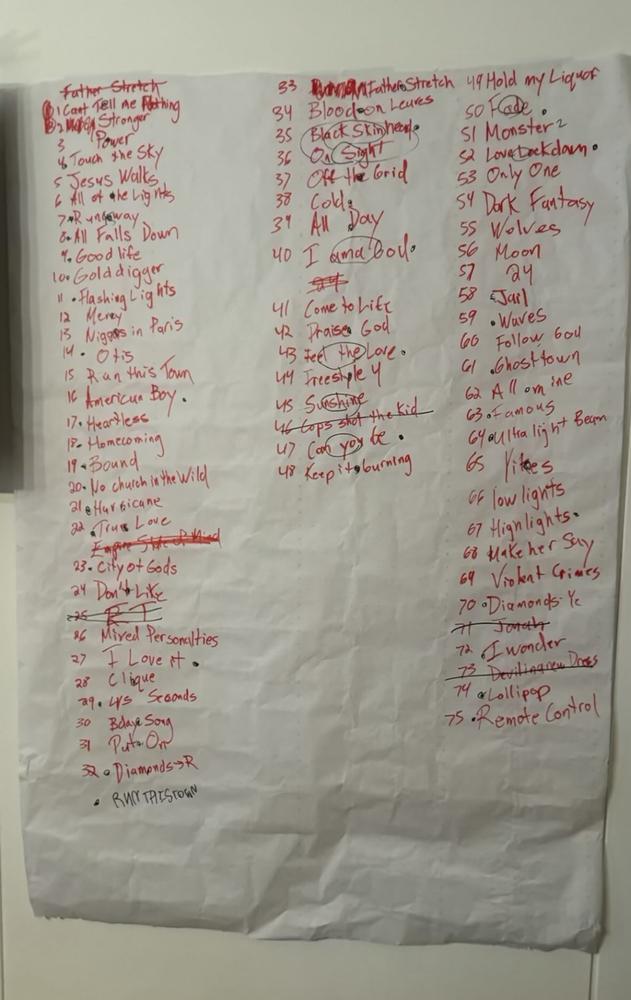 Father Stretch
1 Cant Tell me Nothing
2 Stronger
3 Power
4 Touch the Sky
5 Jesus Walks
6 All of the Lights
7 Runaway
8 All Falls Down
9 Good life
10 Golddigger
11 Flashing Lights
12 Mercy
13 Niggas in Paris
14 Otis
15 Run this Town
16 American Boy
17 Heartless
18 Homecoming
19 Bound
20 No church in the Wild
21 Hurricane
22 True Love
Empire State of Mind
23 City of Gods
24 Don't Like
25 R T
26 Mixed Personalties
27 I Love it
28 Clique
29 4/5 Seconds
30 Bday Song
31 Put On
32 Diamonds→R
RUN THIS TOWN
33 Father Stretch
34 Blood on Leaves
35 Black Skinhead
36 On Sight
37 Off the Grid
38 Cold
39 All Day
40 I am a God
41 Come to Life
42 Praise God
43 Feel the Love
44 Freestyle 4
45 Sunshine
46 Cops shot the kid
47 Can you be
48 Keep it burning
49 Hold my Liquor
50 Fade
51 Monster 2
52 Love Lockdown
53 Only One
54 Dark Fantasy
55 Wolves
56 Moon
57 24
58 Jail
59 Waves
60 Follow God
61 Ghosttown
62 All mine
63 Famous
64 Ultra light Beam
65 Yikes
66 low lights
67 Highlights
68 Make her Say
69 Violent Crimes
70 Diamonds Ye
71 Jonah
72 I wonder
73 Devil in a new Dress
74 Lollipop
75 Remote Control